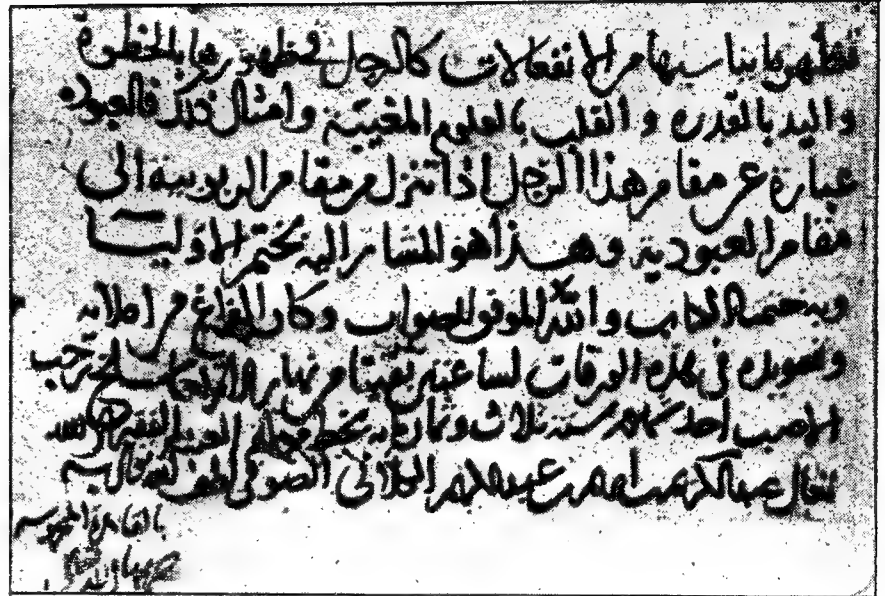 فتظهر بما يناسبها من الانفعالات كالرجل في ظهورها بالخطوة
واليد بالقدرة والقلب بالعلوم المغيبة وامثال ذلك فالعبودة
عبارة عن مقام هذا الرجل اذا تنزل من مقام الربوبية الى
مقام العبودية وهذا هو المشار اليه بختم الاوليا
وبه ختمنا الكتاب والله الموفق للصواب وكان الفراغ من املائه
وتسويده في هذه الورقات لساعتين بقيتا من نهار الاربعا سلخ رجب
الاصب احد شهور سنة ثلاث وثمانمايه بخط ممليه العبد الفقير الى الله
تعالى عبد الكريم بن ابراهيم بن عبد الكريم الكيلاني الصوفي لطف الله تعالى به
بالقاهرة المحروسه